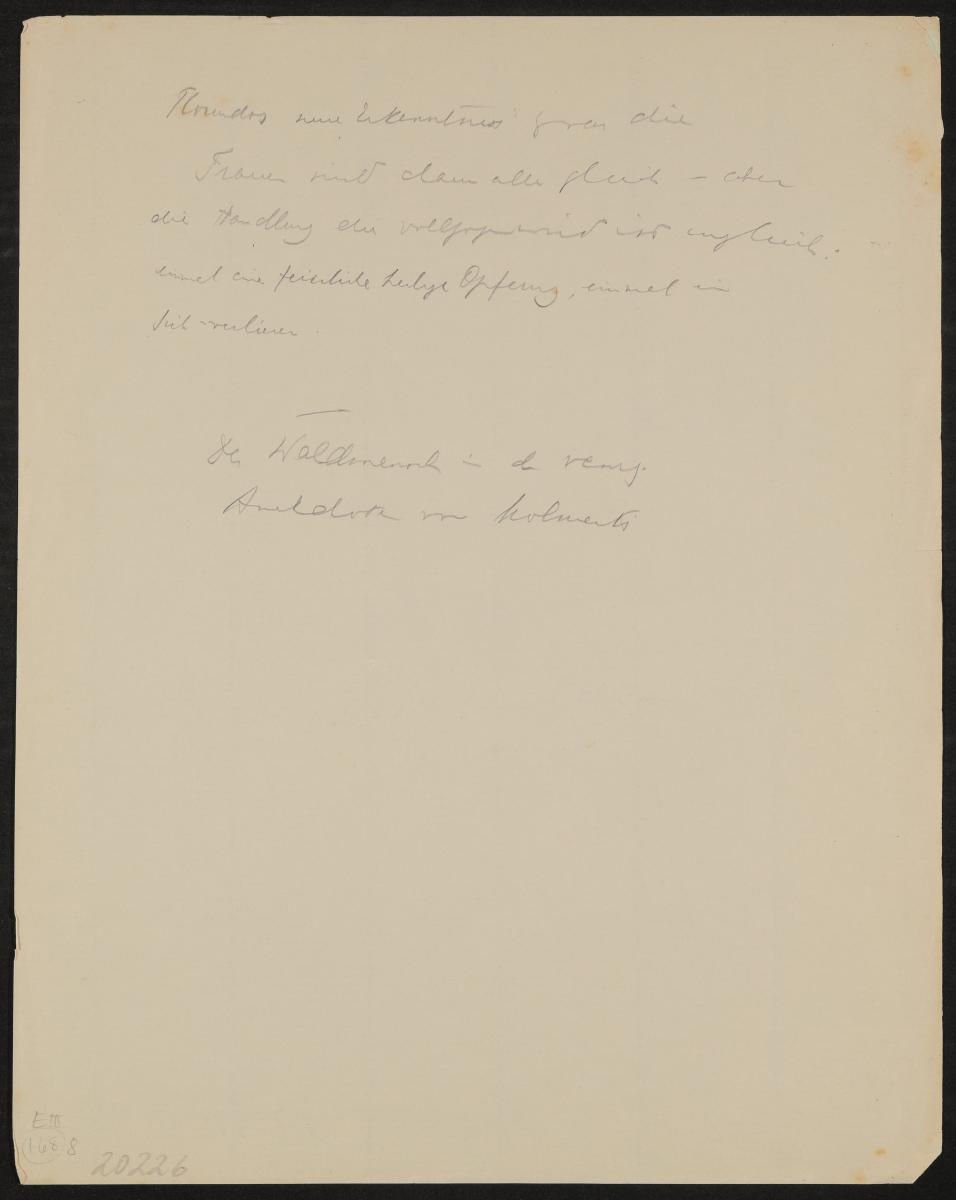 Florindos neue Erkenntniss: zwar die
Frauen sind darin alle gleich – aber
die Handlung die vollzogen wird ist ungleich:
einmal eine feierliche heilige Opferung, einmal ein
Sich-verlieren.
Der Waldmensch in der venez.
Anekdote von Molmenti
E III
168 8
20226